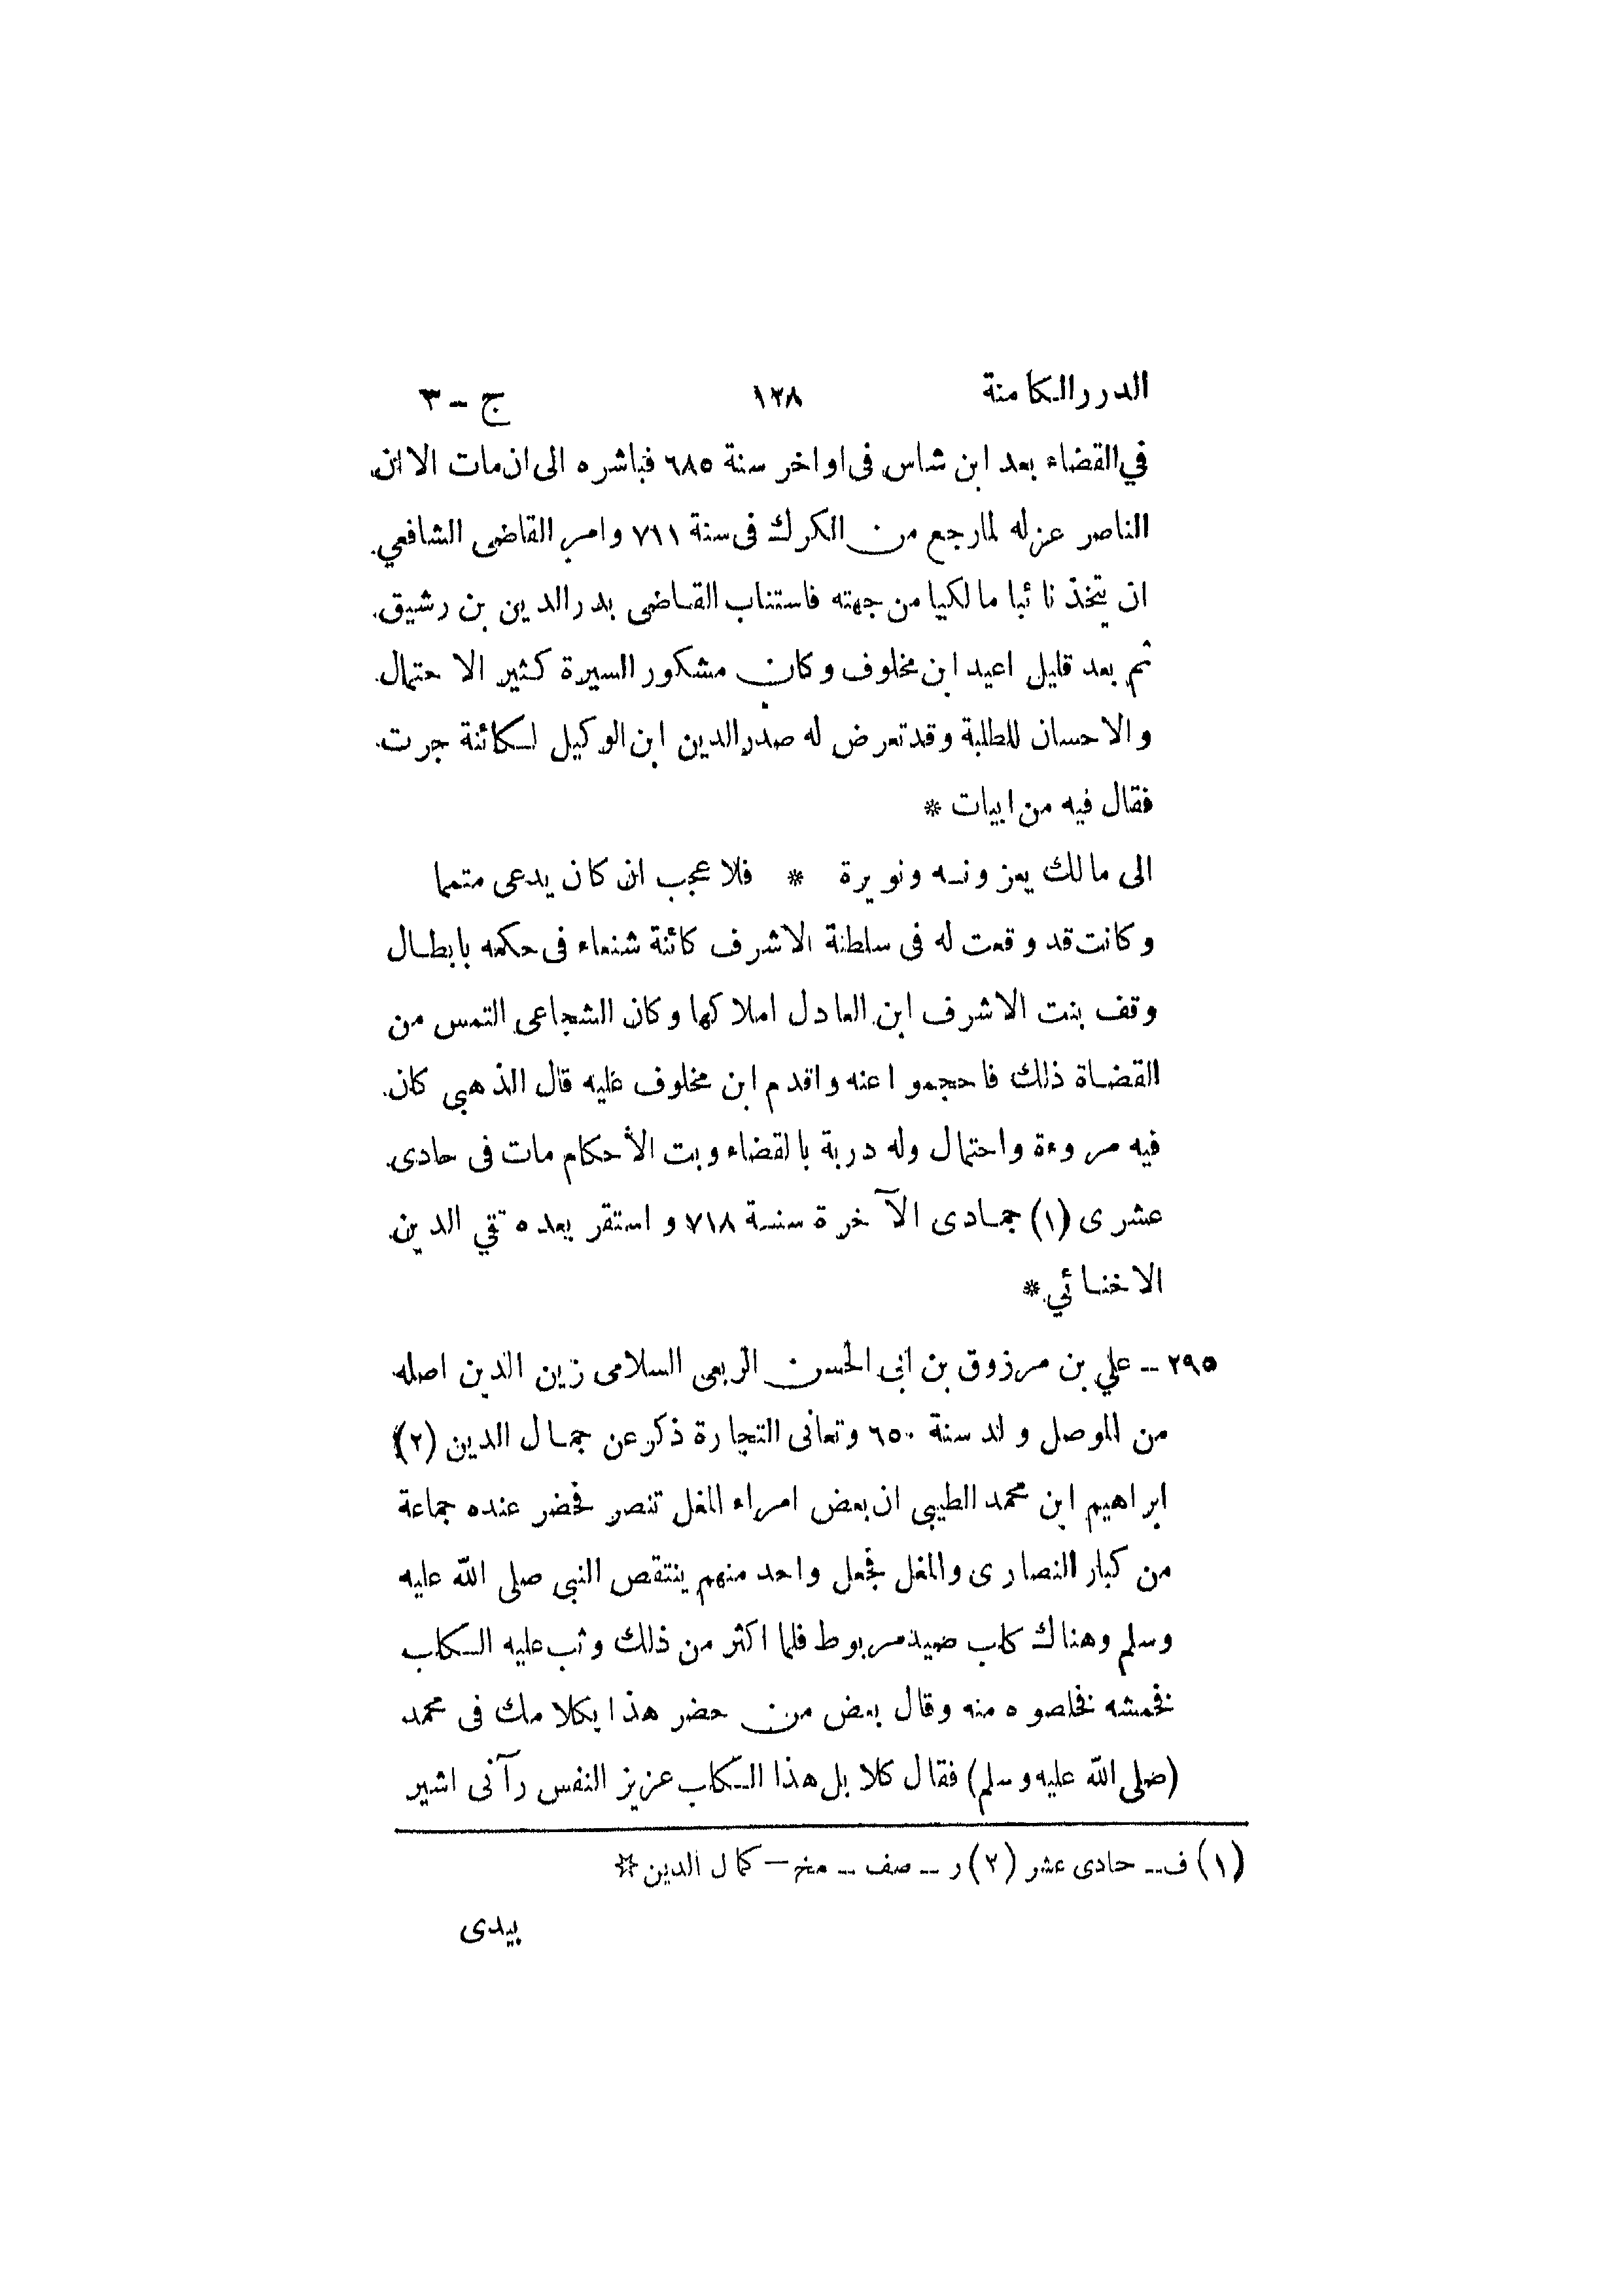 الدرر الكامنة ١٢٨ ج - ٣
في القضاء بعد ابن شاس فى اواخر سنة ٦٨٥ فباشره الى ان مات الا ان
الناصر عزله لما رجع من الكرك فى سنة ٧١١ وامر القاضى الشافعي
ان يتخذ نائبا مالكيا من جهته فاستناب القاضى بدر الدين بن رشيق
ثم بعد قليل اعيد ابن مخلوف وكان مشكور السيرة كثير الاحتمال
والاحسان للطلبة وقد تعرض له صدر الدين ابن الوكيل لكائنة جرت
فقال فيه من ابيات *
الى مالك يعزونه ونويرة * فلا عجب ان كان يدعى متمما
وكانت قد وقعت له فى سلطنة الاشرف كائنة شنعاء فى حكمه بابطال
وقف بنت الاشرف ابن العادل املاكها وكان الشجاعى التمس من
القضاة ذلك فاحجموا عنه واقدم ابن مخلوف عليه قال الذهبى كان
فيه مروءة واحتمال وله دربة بالقضاء وبت الأحكام مات فى حادى
عشرى (١) جمادى الآخرة سنة ٧١٨ واستقر بعده تقي الدين
الاخنائي *
٢٩٥ -- علي بن مرزوق بن ابى الحسن الربعى السلامى زين الدين اصله
من الموصل ولد سنة ٦٥٠ وتعانى التجارة ذكر عن جمال الدين (٢)
ابراهيم ابن محمد الطيبى ان بعض امراء المغل تنصر فحضر عنده جماعة
من كبار النصارى والمغل فجعل واحد منهم ينتقص النبى صلى الله عليه
وسلم وهناك كلب صيد مربوط فلما اكثر من ذلك وثب عليه الكلب
فخمشه فخلصوه منه وقال بعض من حضر هذا بكلامك فى محمد
(صلى الله عليه وسلم) فقال كلا بل هذا الكلب عزيز النفس رآنى اشير
(١) ف -- حادى عشر (٢) ر -- صف -- مخ - كمال الدين *
بيدى